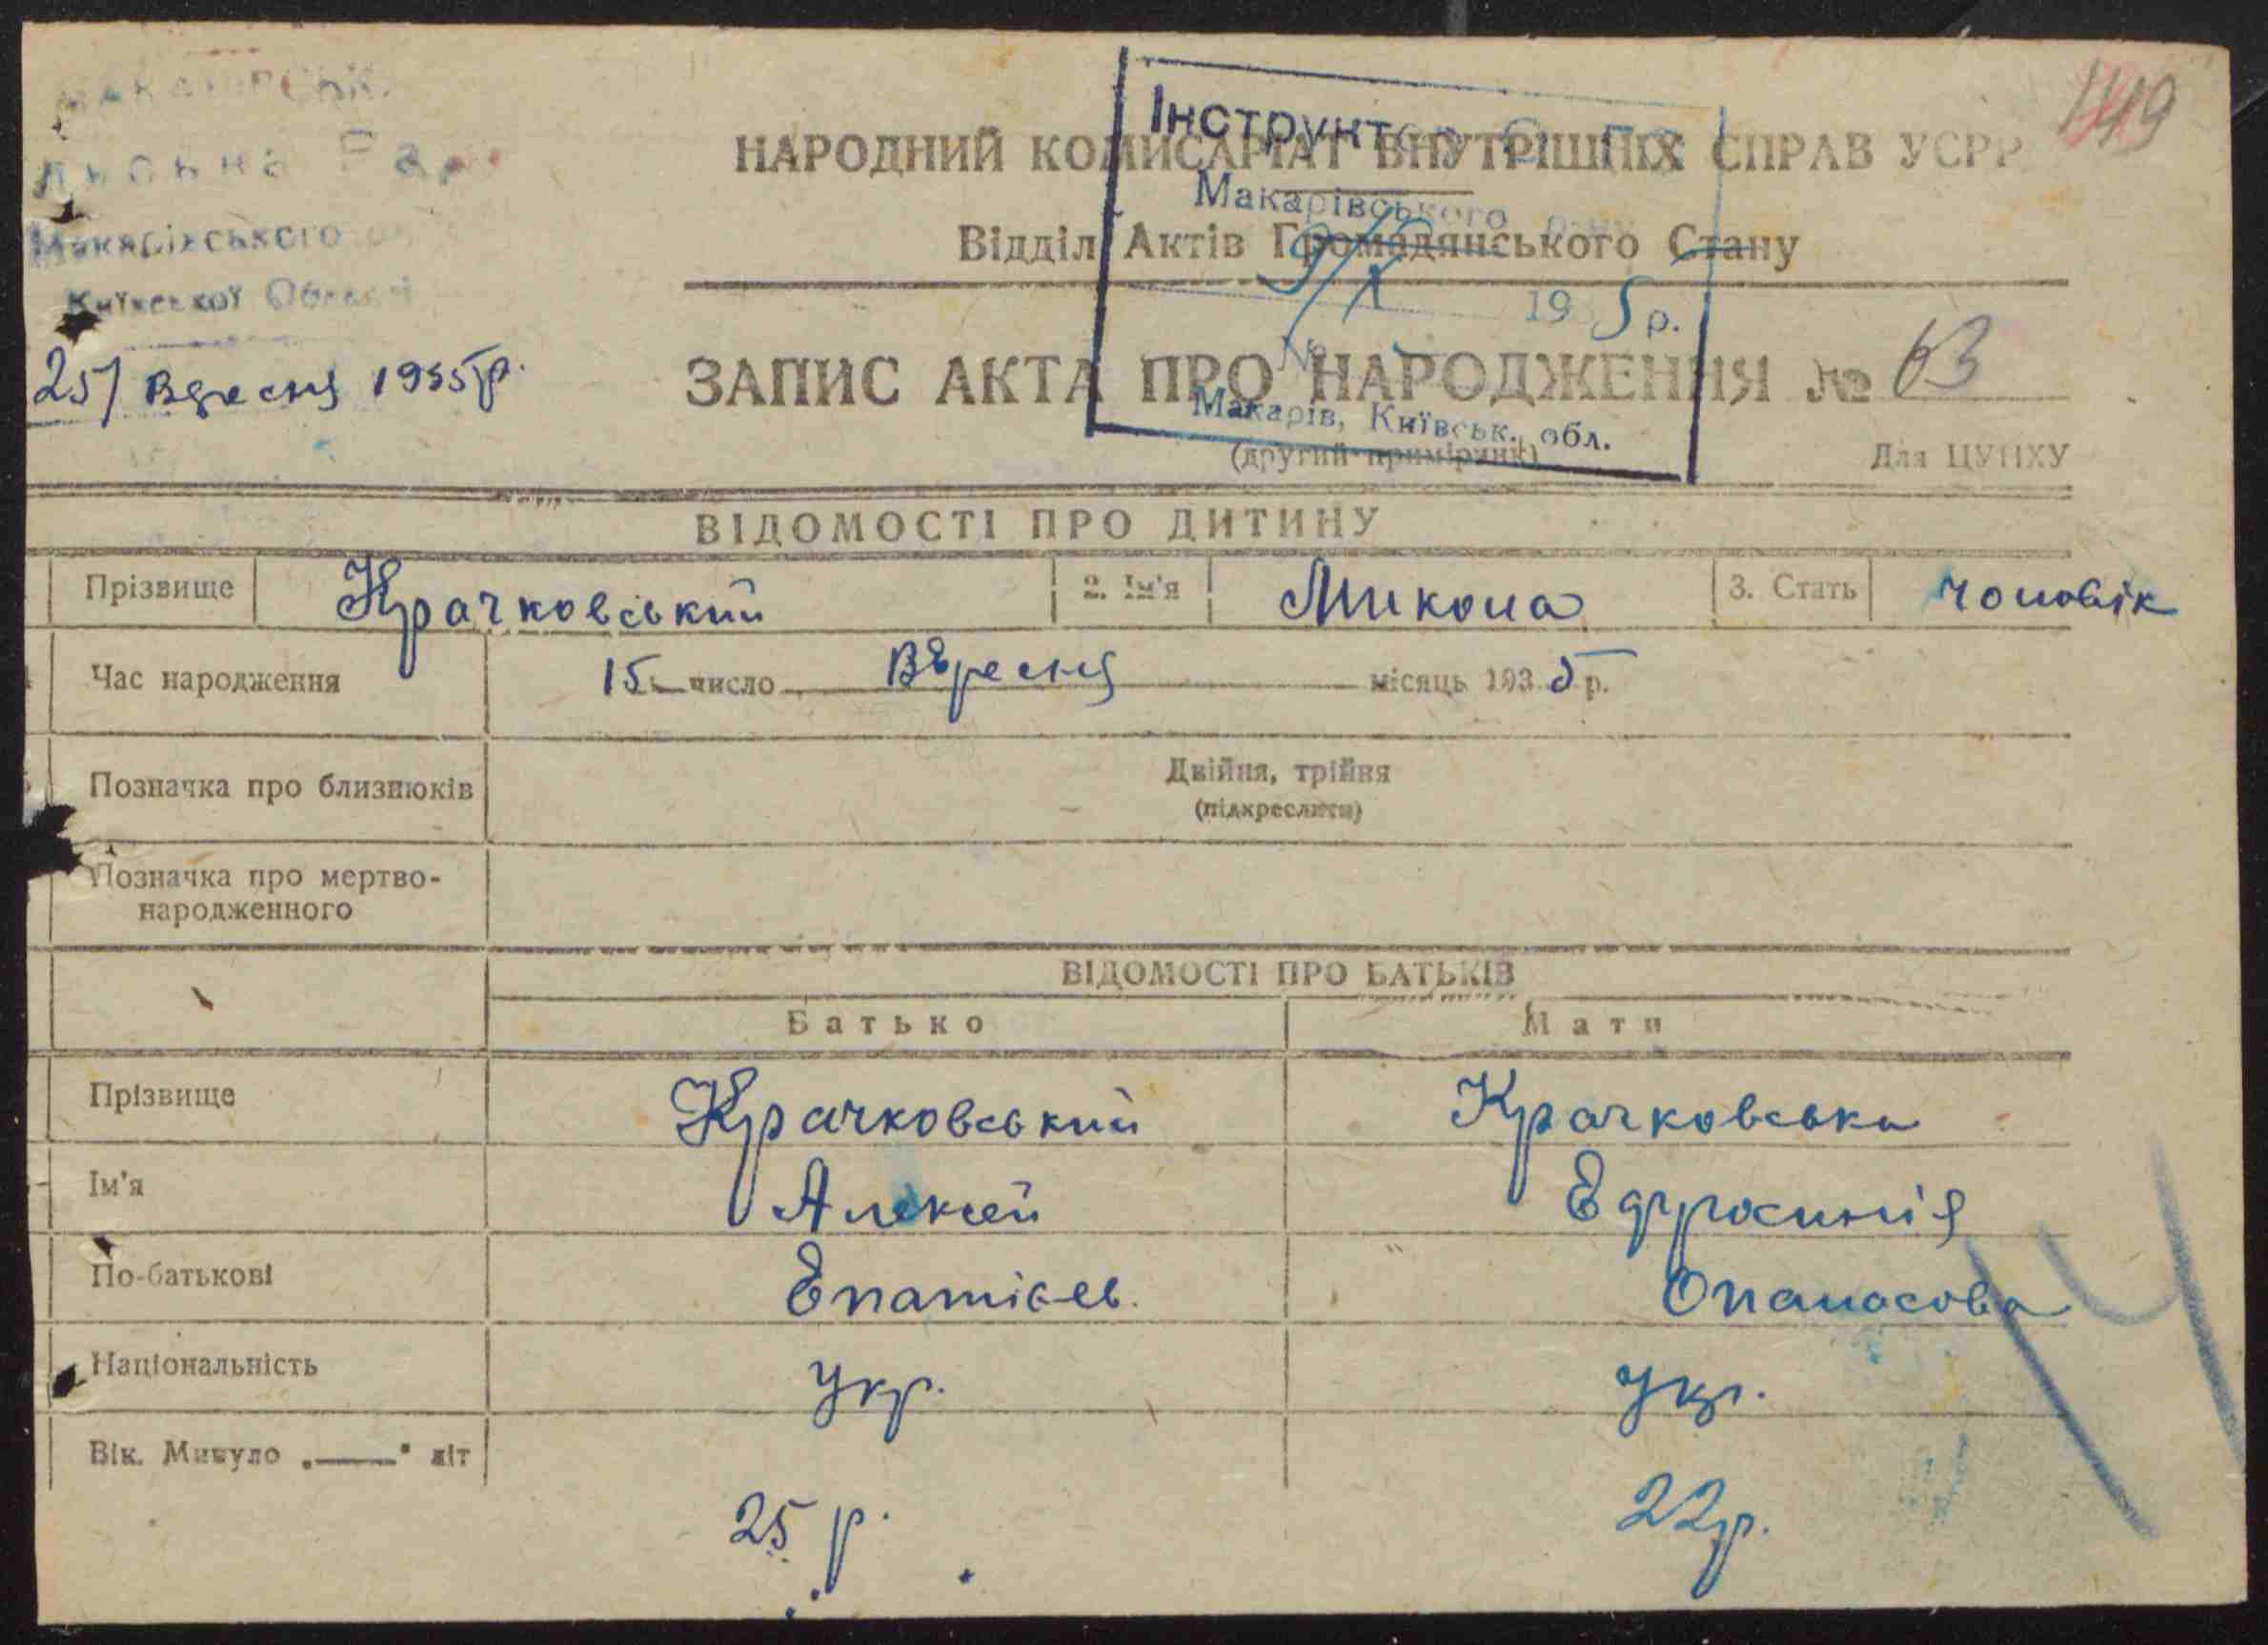 149
НАРОДНИЙ КОМИСАРІАТ ВНУТРІШНІХ СПРАВ УСРР
Відділ Актів Громадянського Стану
Макарівського
Київської Області
25/ Вересня 1935 р.
Інструктор
Макарівського
9/X 19 5 р.
№
Макарів, Київськ. обл.
ЗАПИС АКТА ПРО НАРОДЖЕННЯ № 63
(другий примірник)
Для ЦУНХУ
ВІДОМОСТІ ПРО ДИТИНУ
Прізвище Крачковський 2. Ім'я Микола 3. Стать чоловік
Час народження 15 число Вересня місяць 1935 р.
Позначка про близнюків Двійня, трійня
(підкреслити)
Позначка про мертво-
народженного
ВІДОМОСТІ ПРО БАТЬКІВ
Батько Мати
Прізвище Крачковський Крачковська
Ім'я Алексей Ефросинія
По-батькові Епатієв. Опанасова
Національність укр. укр.
Вік. Минуло „——" літ
25 р. 22 р.